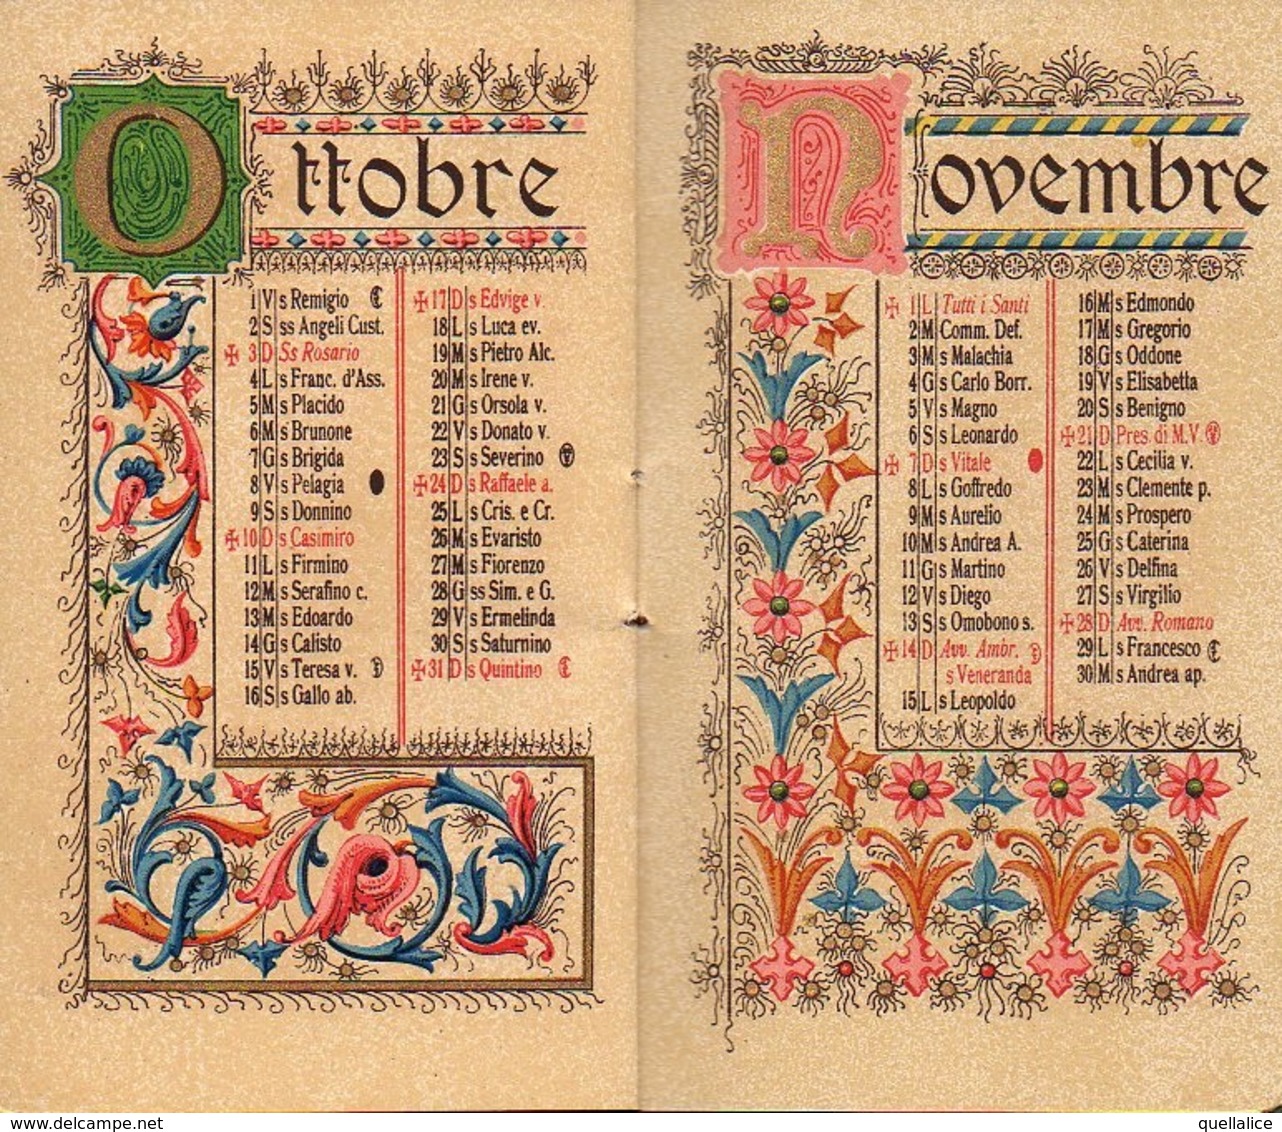 Ottobre
1 V s Remigio
2 S ss Angeli Cust.
3 D Ss Rosario
4 L s Franc. d'Ass.
5 M s Placido
6 M s Brunone
7 G s Brigida
8 V s Pelagia
9 S s Donnino
10 D s Casimiro
11 L s Firmino
12 M s Serafino c.
13 M s Edoardo
14 G s Calisto
15 V s Teresa v.
16 S s Gallo ab.
17 D s Edvige v.
18 L s Luca ev.
19 M s Pietro Alc.
20 M s Irene v.
21 G s Orsola v.
22 V s Donato v.
23 S s Severino
24 D s Raffaele a.
25 L s Cris. e Cr.
26 M s Evaristo
27 M s Fiorenzo
28 G ss Sim. e G.
29 V s Ermelinda
30 S s Saturnino
31 D s Quintino
Novembre
1 L Tutti i Santi
2 M Comm. Def.
3 M s Malachia
4 G s Carlo Borr.
5 V s Magno
6 S s Leonardo
7 D s Vitale
8 L s Goffredo
9 M s Aurelio
10 M s Andrea A.
11 G s Martino
12 V s Diego
13 S s Omobono s.
14 D Avv. Ambr.
s Veneranda
15 L s Leopoldo
16 M s Edmondo
17 M s Gregorio
18 G s Oddone
19 V s Elisabetta
20 S s Benigno
21 D Pres. di M.V.
22 L s Cecilia v.
23 M s Clemente p.
24 M s Prospero
25 G s Caterina
26 V s Delfina
27 S s Virgilio
28 D Avv. Romano
29 L s Francesco
30 M s Andrea ap.
www.delcampe.net
quellalice